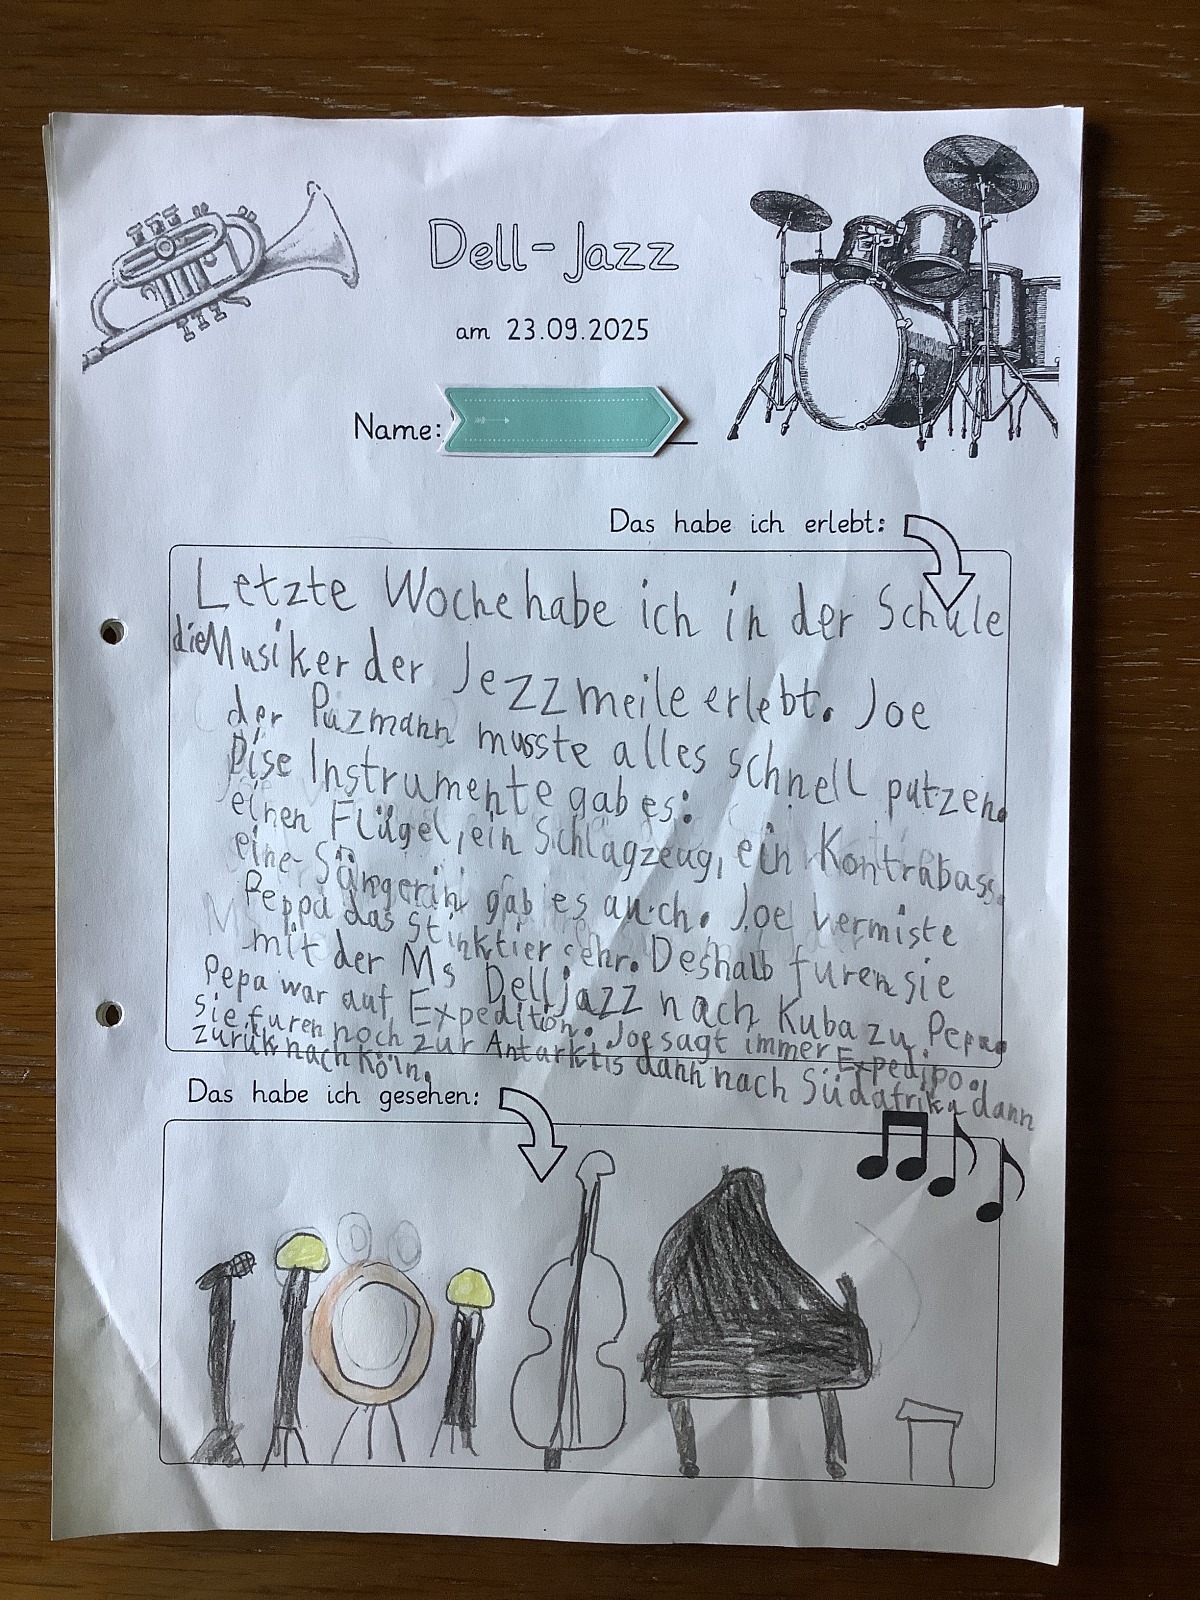 Dell-Jazz
am 23.09.2025
Name:
Das habe ich erlebt:
Letzte Woche habe ich in der Schule
die Musiker der Jezzmeile erlebt. Joe
der Puzmann musste alles schnell putzen.
Dise Instrumente gab es:
einen Flügel, ein Schlagzeug, ein Kontrabass.
eine Sängerin gab es auch. Joe vermiste
Peppa das Stinktier sehr. Deshalb furen sie
mit der Ms Delljazz nach Kuba zu Pepa
Pepa war auf Expedition. Joe sagt immer Expedipo.
sie furen noch zur Antarktis dann nach Südafrika dann
zurük nach Köln.
Das habe ich gesehen: